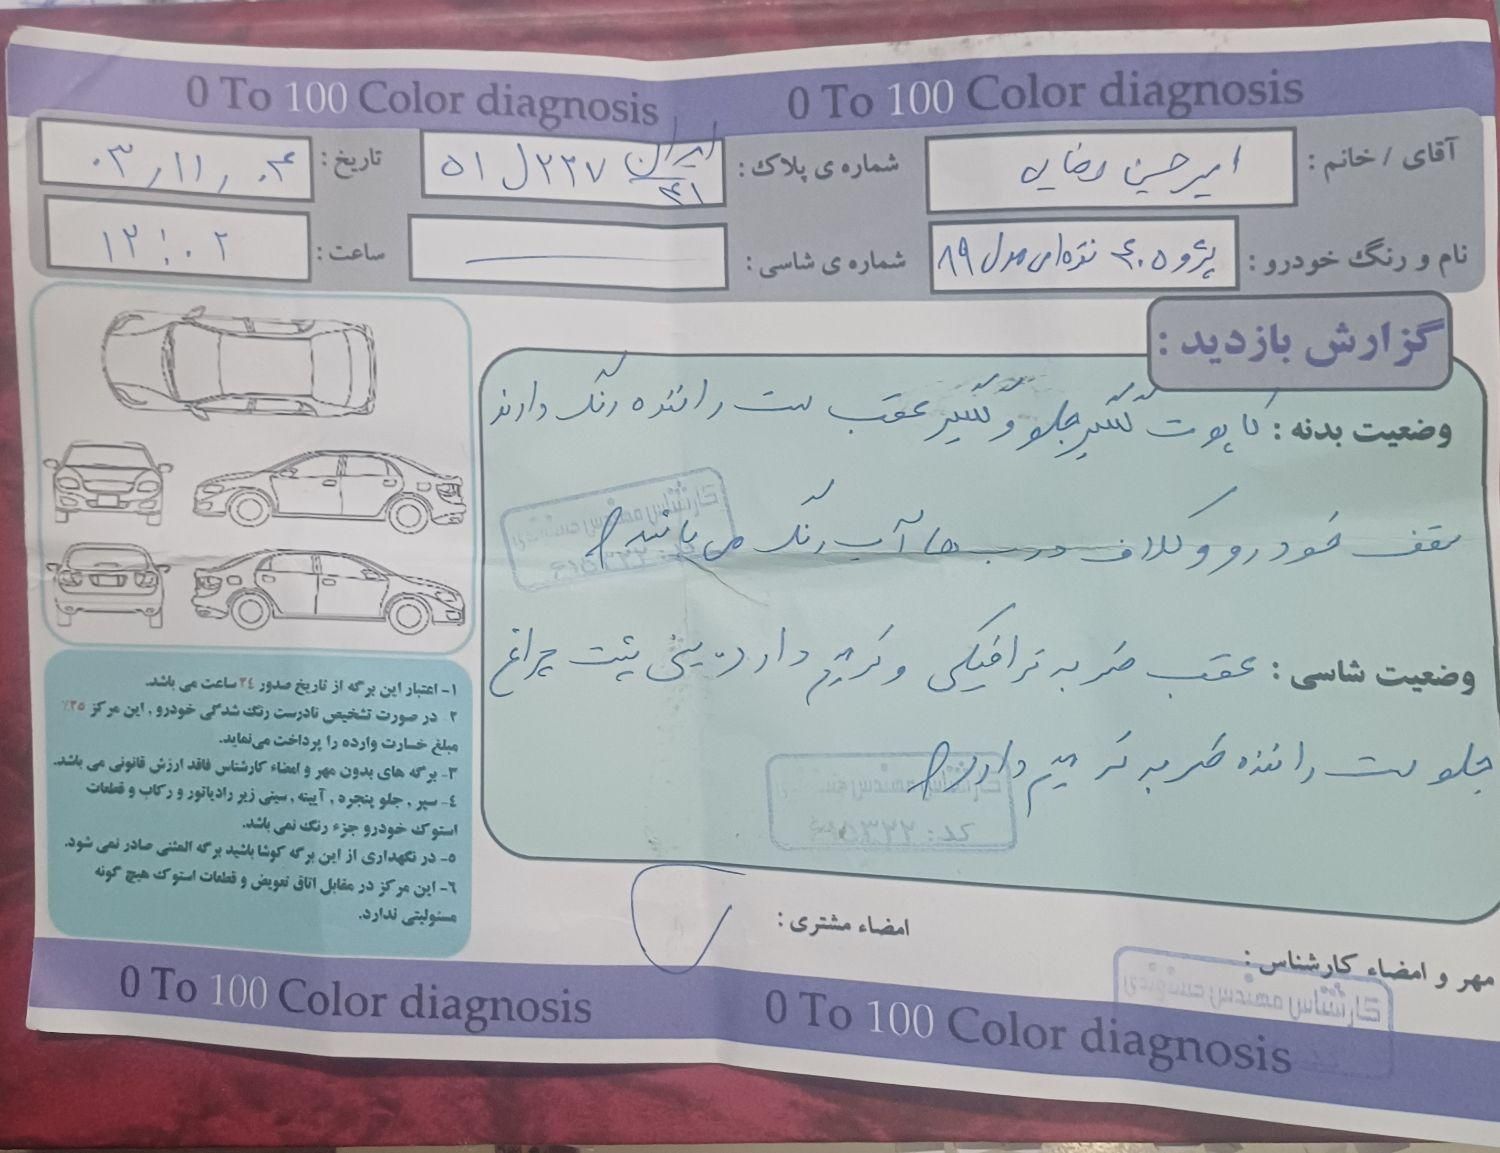 0 To 100 Color diagnosis 0 To 100 Color diagnosis
آقای / خانم : امیرحسین رضایی
شماره ی پلاک : ایران ۴۱ ۵۱ ل ۲۲۷
تاریخ : ۰۳ ، ۱۱ ، ۰۴
نام و رنگ خودرو : پژو ۴۰۵ نقره‌ای مدل ۸۹
شماره ی شاسی :
ساعت : ۱۲:۰۲
گزارش بازدید :
وضعیت بدنه : کاپوت گلگیر جلو و گلگیر عقب سمت راننده رنگ دارند
سقف خودرو و کلاف درب ها آب رنگ می باشد
وضعیت شاسی : عقب ضربه ترافیکی و ترمیم دارد سینی پشت چراغ
جلو سمت راننده ضربه ترمیم دارد
۱- اعتبار این برگه از تاریخ صدور ۲٤ ساعت می باشد.
۲- در صورت تشخیص نادرست رنگ شدگی خودرو , این مرکز ۲۵٪
مبلغ خسارت وارده را پرداخت می‌نماید.
۳- برگه های بدون مهر و امضاء کارشناس فاقد ارزش قانونی می باشد.
٤- سپر , جلو پنجره , آیینه , سینی زیر رادیاتور و رکاب و قطعات
استوک خودرو جزء رنگ نمی باشد.
۵- در نگهداری از این برگه کوشا باشید برگه المثنی صادر نمی شود.
٦- این مرکز در مقابل اتاق تعویض و قطعات استوک هیچ گونه
مسئولیتی ندارد.
امضاء مشتری :
مهر و امضاء کارشناس :
0 To 100 Color diagnosis 0 To 100 Color diagnosis